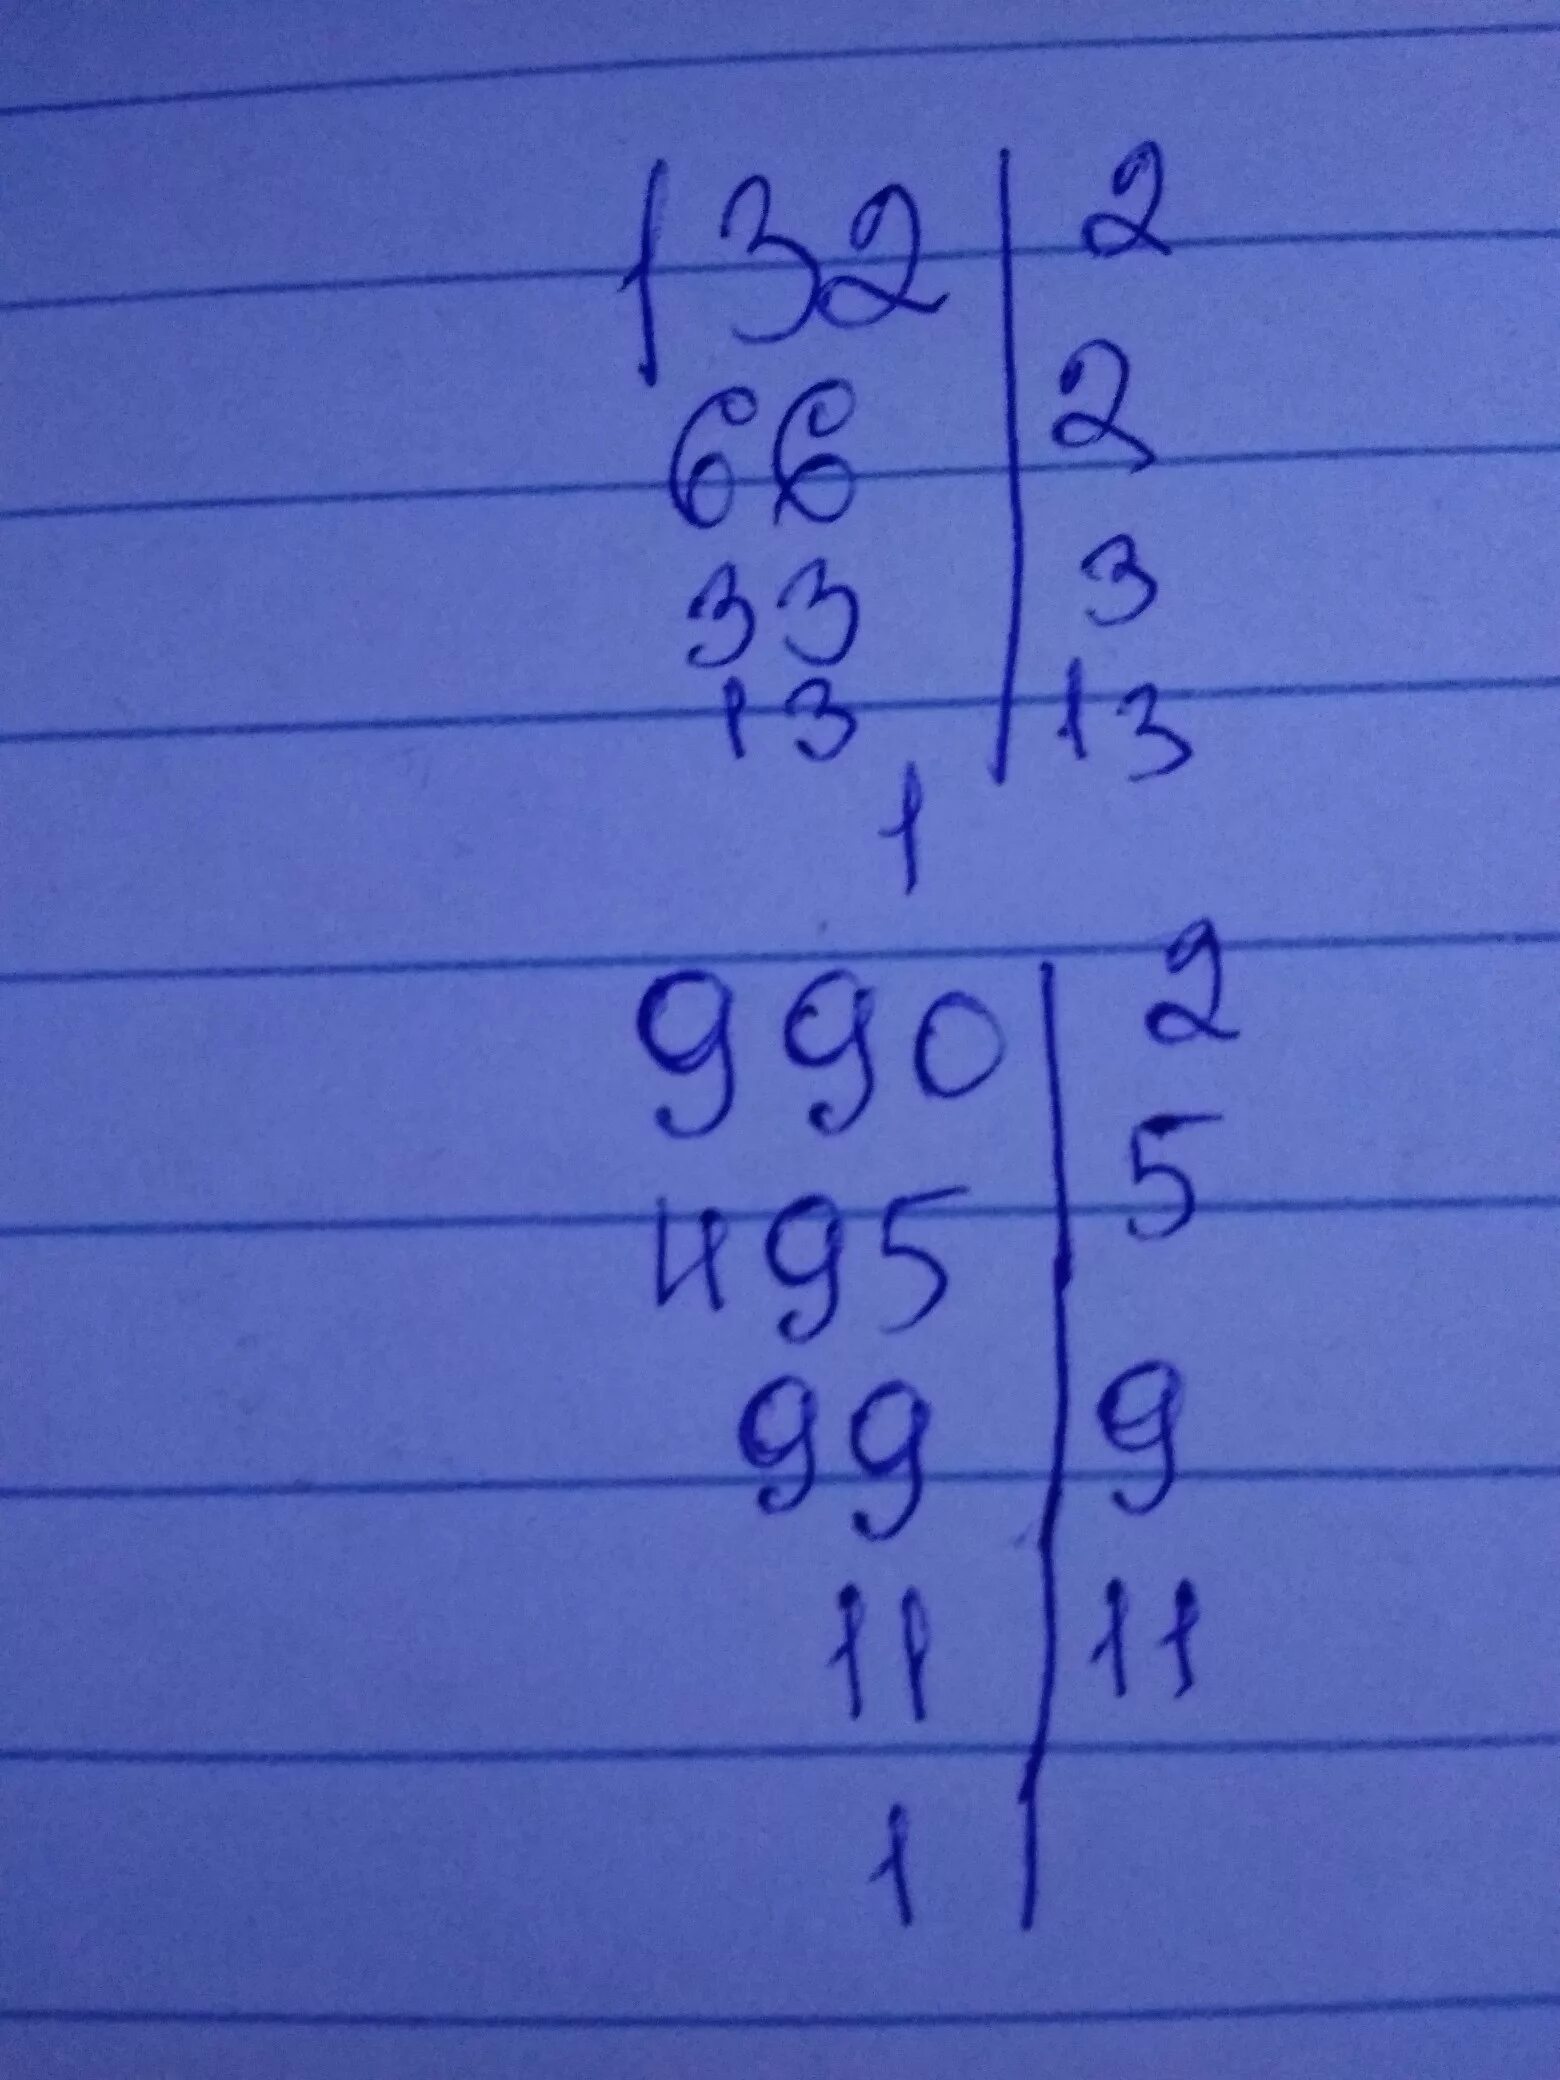 132 | 2
66 | 2
33 | 3
13 | 13
1
990 | 2
495 | 5
99 | 9
11 | 11
1 |